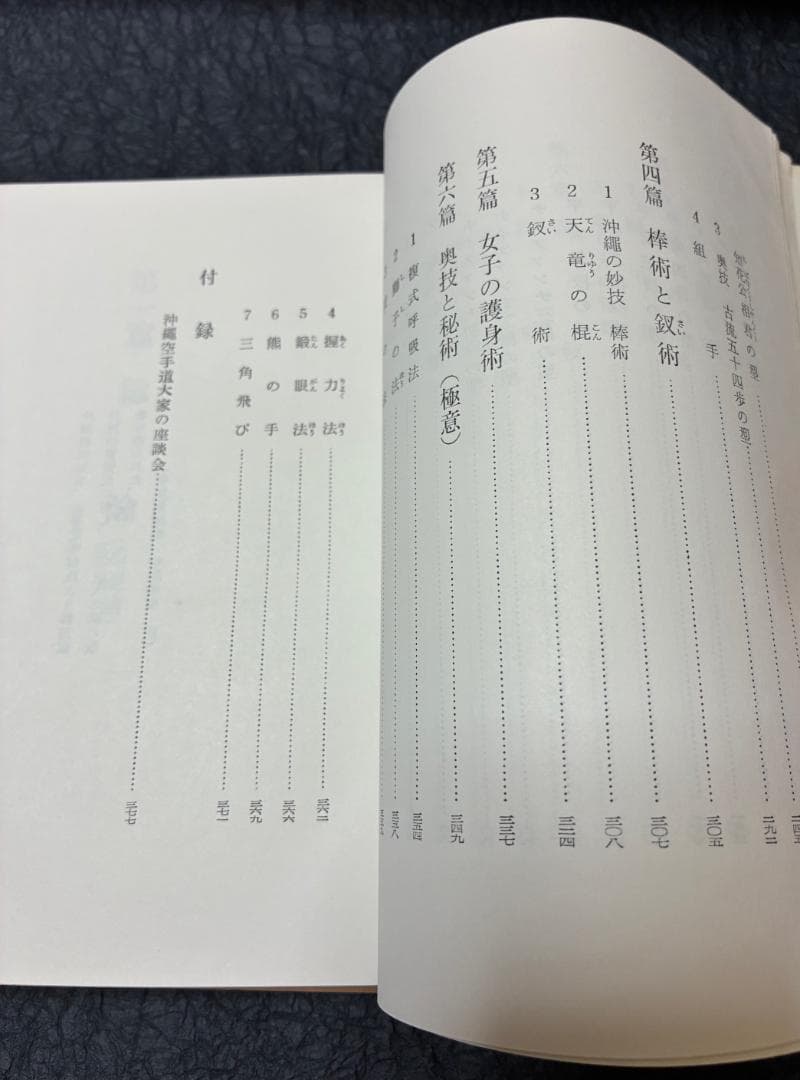 3 奥技 古流五十四歩の型 二九二
4 組手 三〇五
第四篇 棒術と釵術 三〇七
1 沖繩の妙技 棒術 三〇八
2 天竜の棍
3 釵術 三二四
第五篇 女子の護身術 三三七
第六篇 奥技と秘術（極意） 三四九
1 複式呼吸法 三五四
2 獅子の法 三五八
4 握力法 三六二
5 鍛眼法 三六六
6 熊の手 三六九
7 三角飛び 三七一
付録
沖繩空手道大家の座談会 三七七